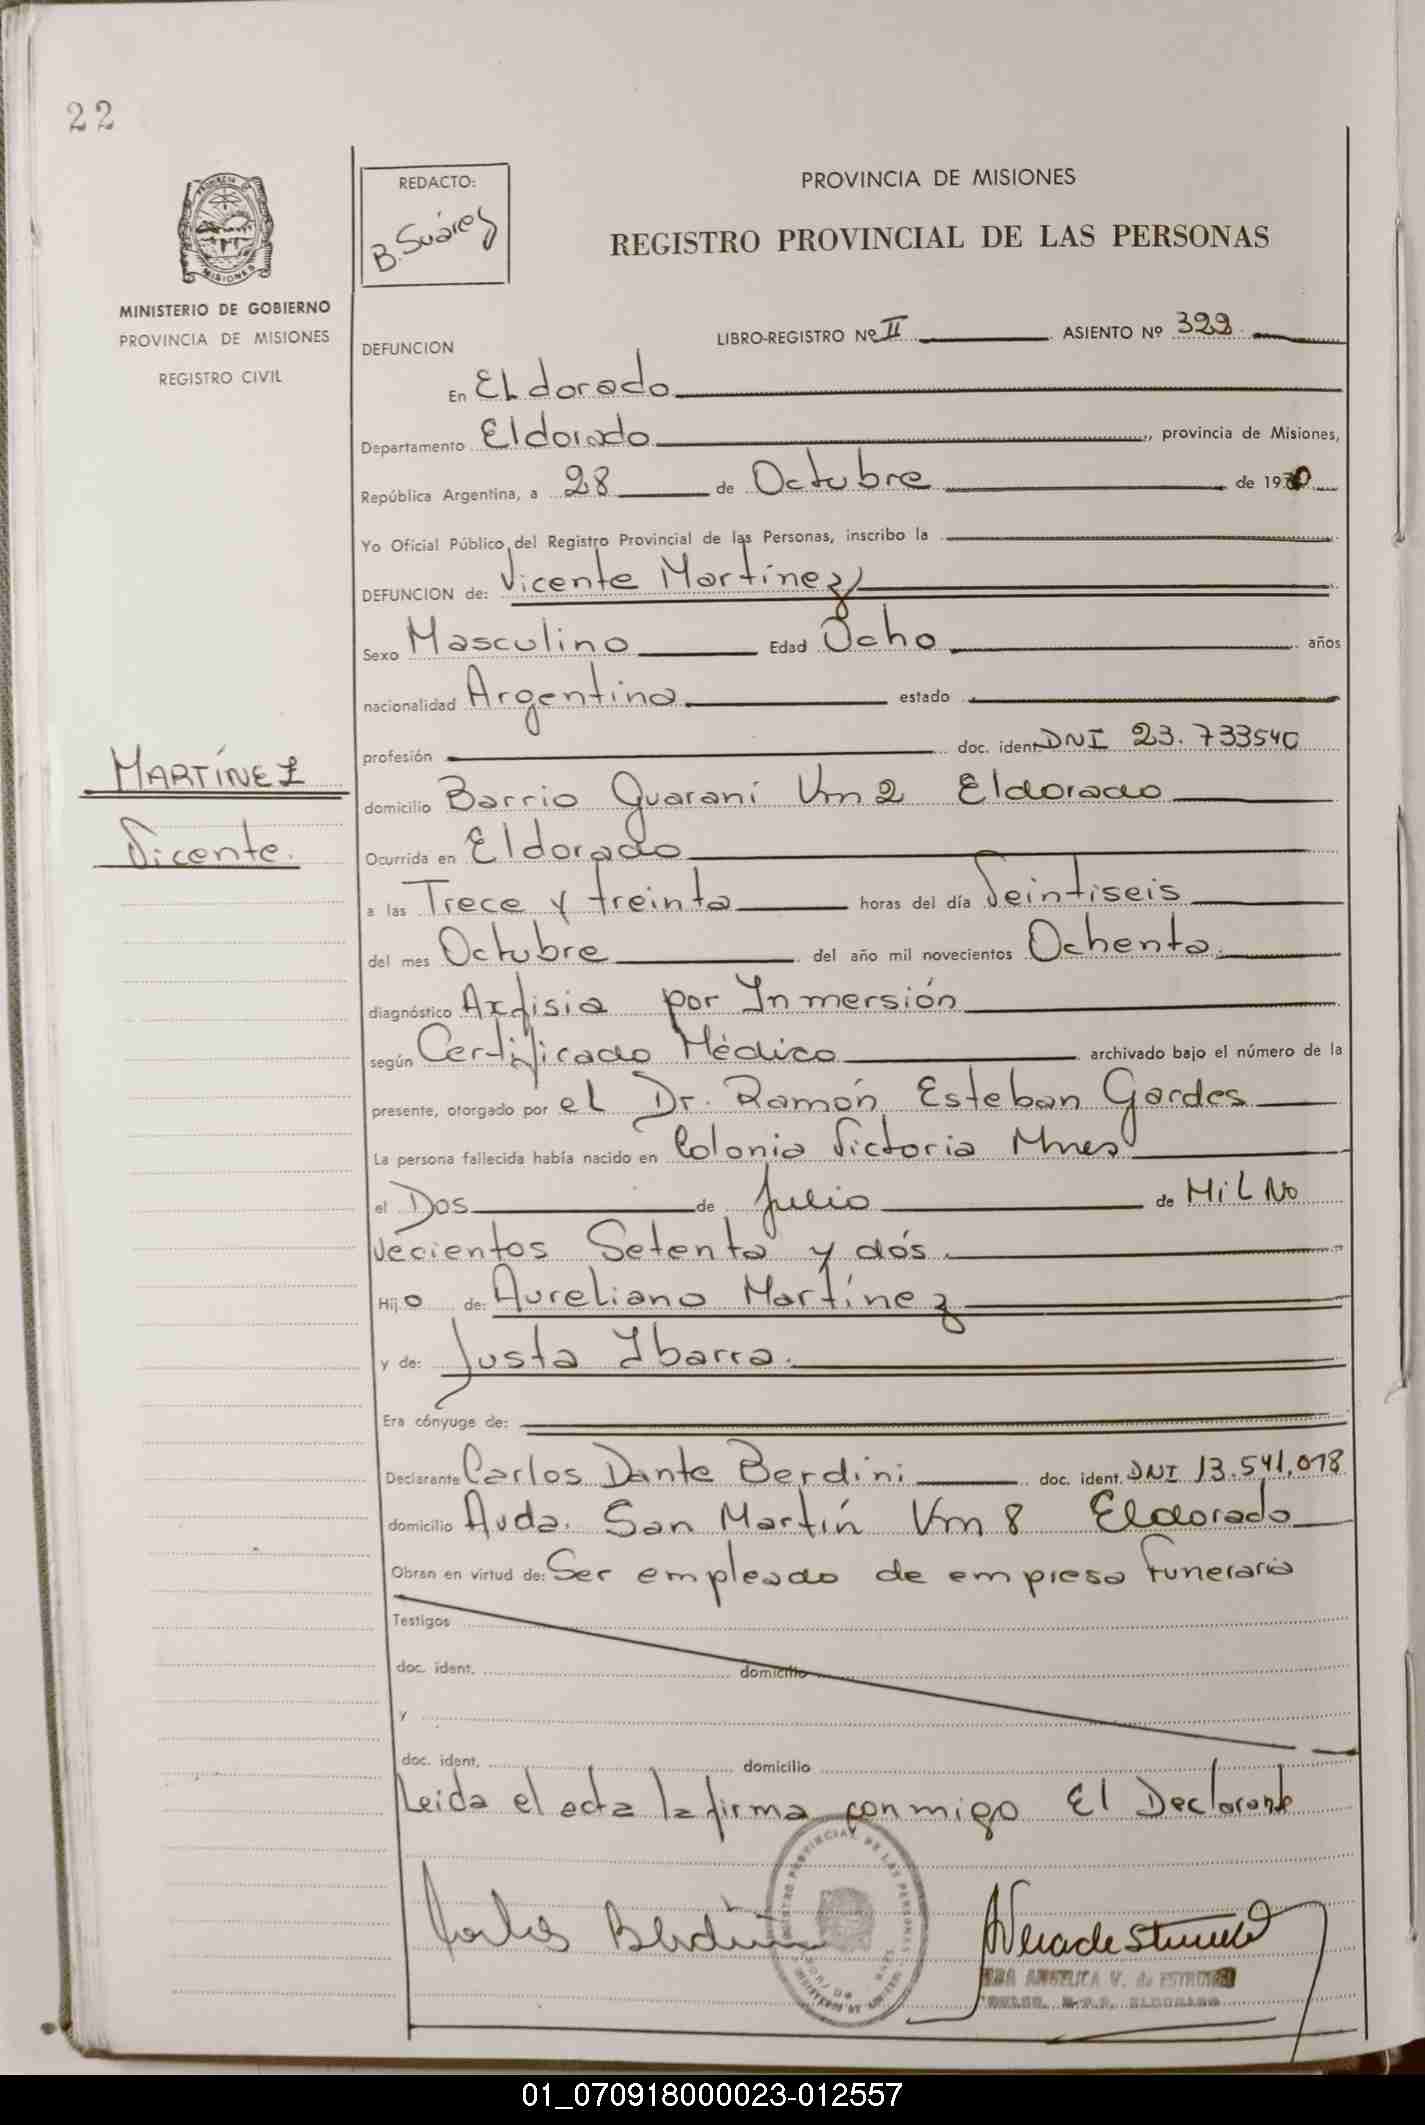 22
REDACTO:
B. Suárez
PROVINCIA DE MISIONES
REGISTRO PROVINCIAL DE LAS PERSONAS
MINISTERIO DE GOBIERNO
PROVINCIA DE MISIONES
REGISTRO CIVIL
LIBRO-REGISTRO Nº II ASIENTO Nº 322
DEFUNCION
En Eldorado
Departamento Eldorado, provincia de Misiones,
República Argentina, a 28 de Octubre de 19
Yo Oficial Público del Registro Provincial de las Personas, inscribo la
DEFUNCION de: Vicente Martínez
Sexo Masculino Edad Ocho años
nacionalidad Argentina estado
profesión doc. ident. DNI 23.733540
MARTÍNEZ
Vicente.
domicilio Barrio Guaraní Km 2 Eldorado
Ocurrida en Eldorado
a las Trece y treinta horas del día Veintiseis
del mes Octubre del año mil novecientos Ochenta
diagnóstico Axfisia por Inmersión
según Certificado Médico archivado bajo el número de la
presente, otorgado por el Dr. Ramón Esteban Gardes
La persona fallecida había nacido en Colonia Victoria Mnes
el Dos de Julio de Mil No
vecientos Setenta y dós
Hijo de: Aureliano Martínez
y de: Justa Ibarra.
Era cónyuge de:
Declarante Carlos Dante Berdini doc. ident. DNI 13.541.078
domicilio Avda. San Martín Km 8 Eldorado
Obran en virtud de: Ser empleado de empresa funeraria
Testigos
doc. ident. domicilio
y
doc. ident. domicilio
Leida el acta la firma conmigo El Declarante
REGISTRO PROVINCIAL DE LAS PERSONAS
ANGELICA V. de
ELDORADO
01_070918000023-012557